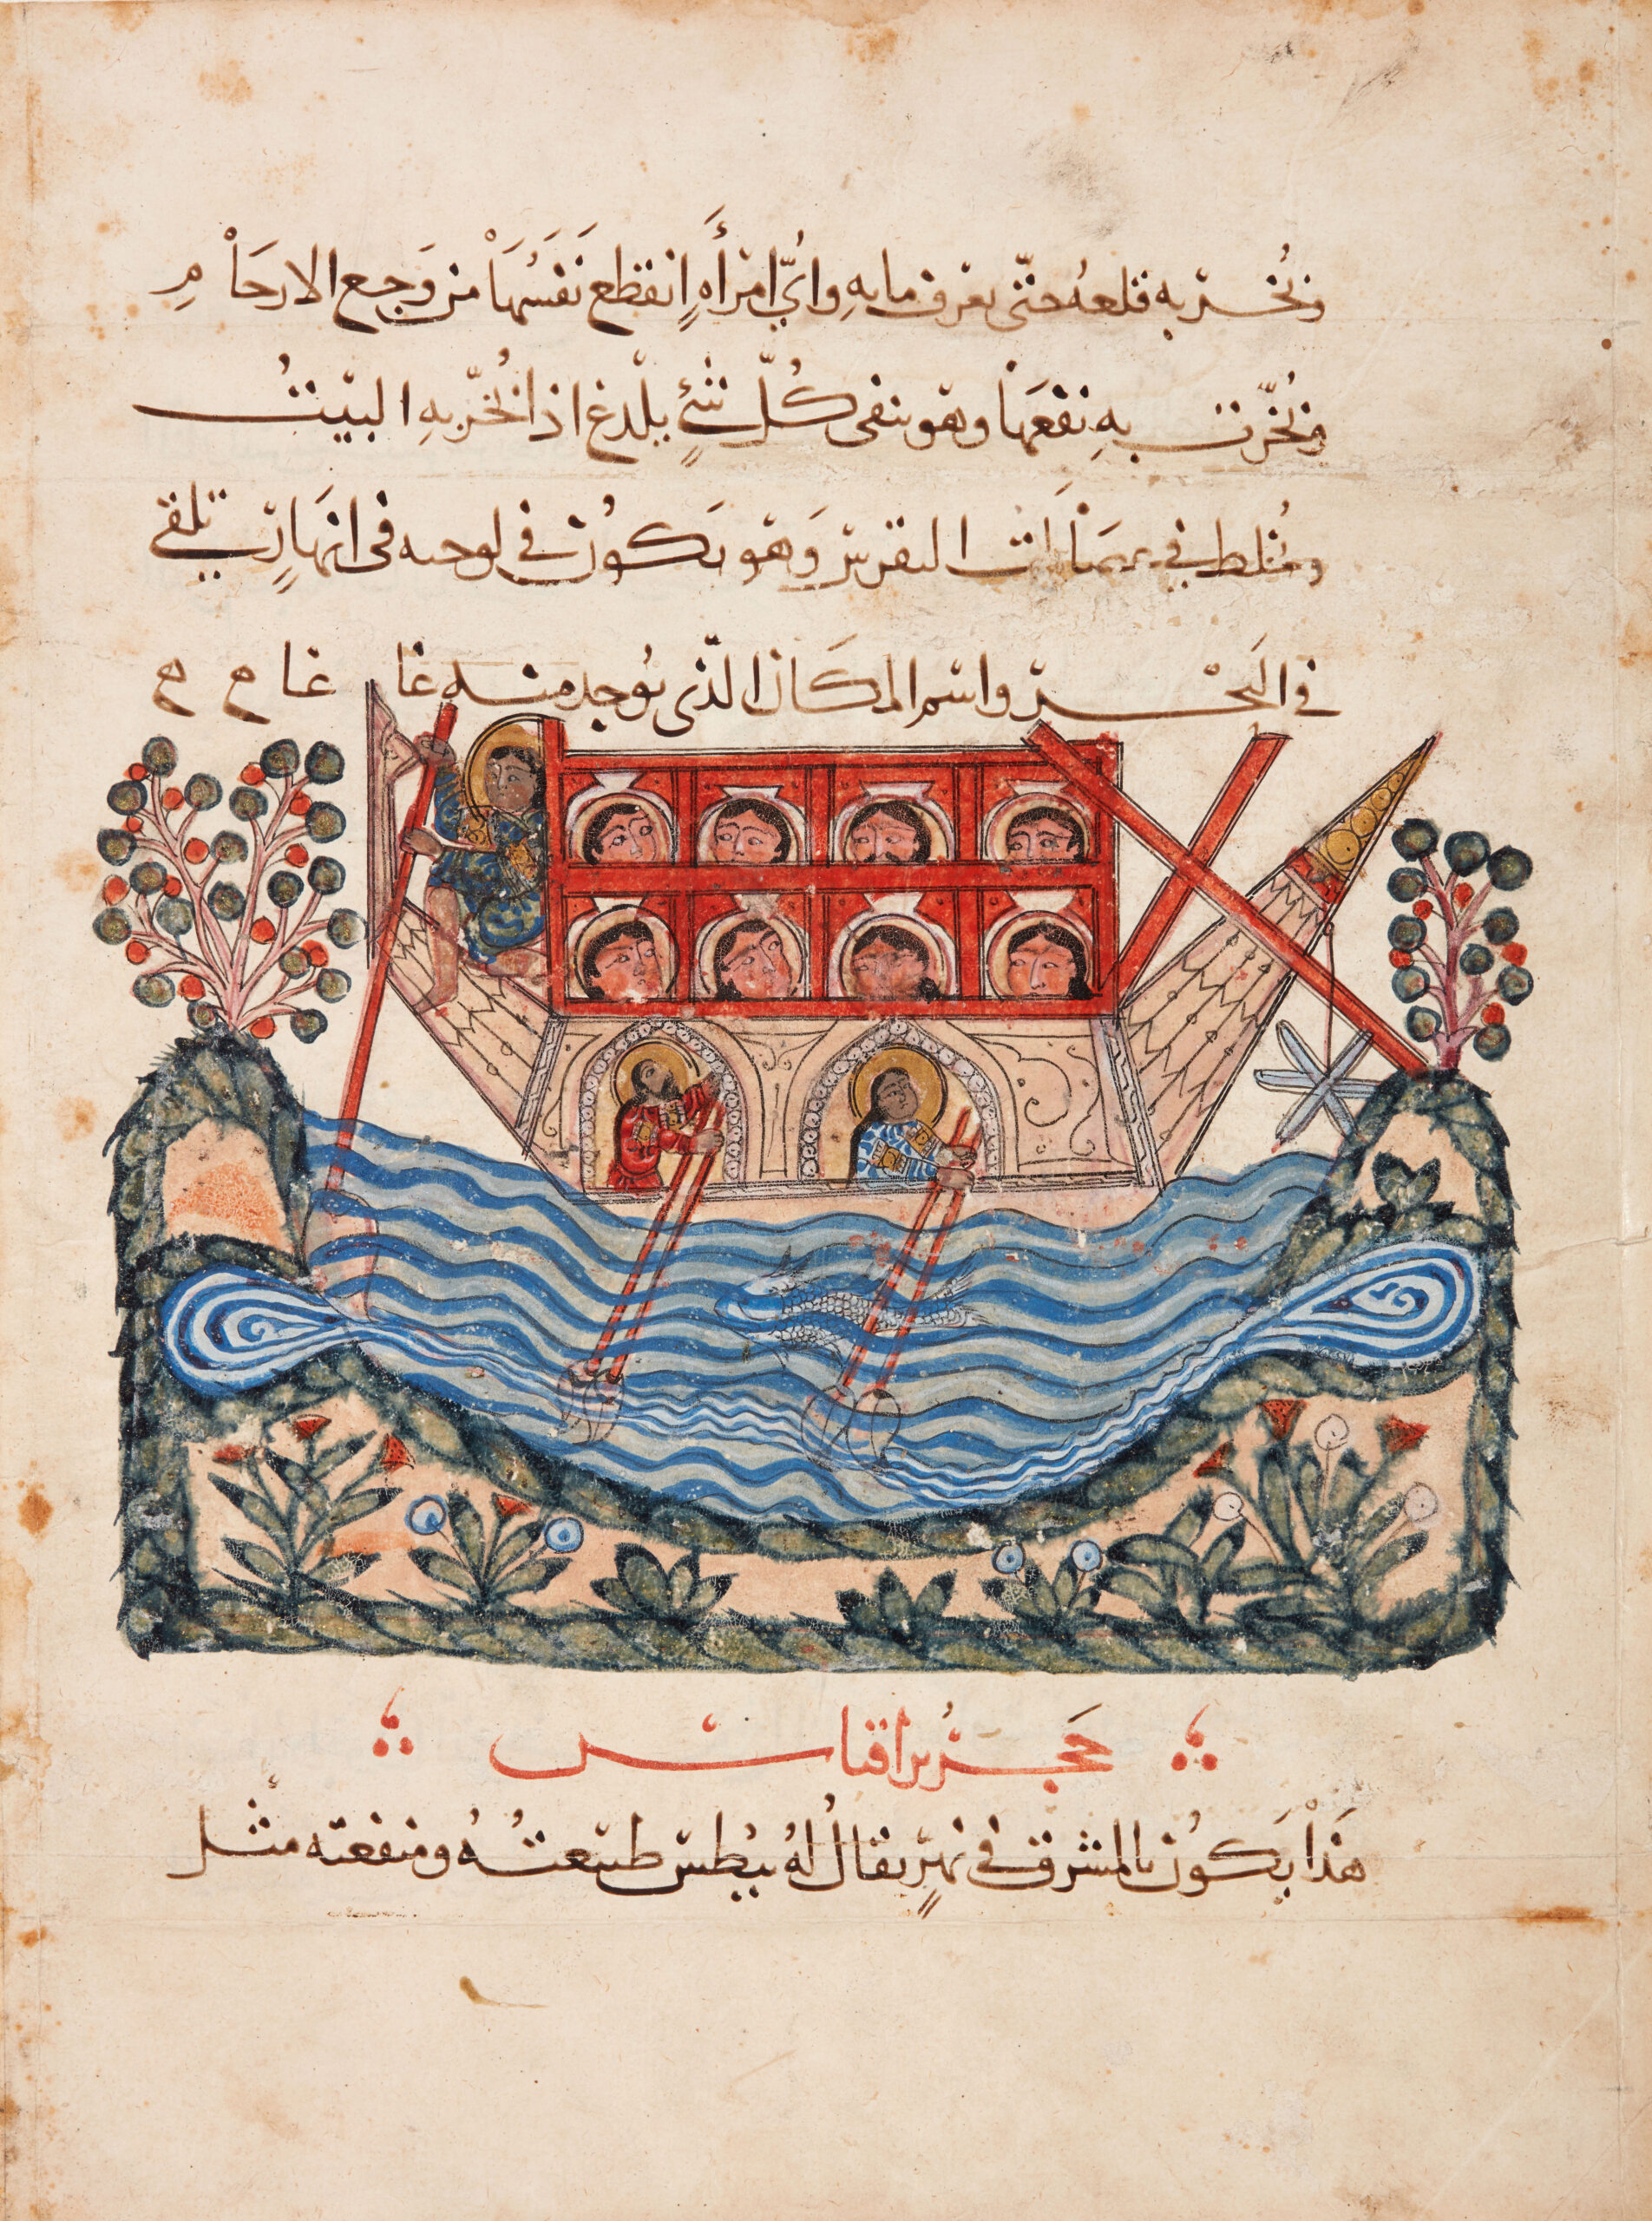 وبُخّر به قلعه حتّى يعرف ما به وايُّ امرأةٍ انقطع نَفَسُهَا من وَجع الارحَام
وبُخّرت به نفعها وهو ينفى كُلّ شئٍ يلدغ اذا بُخّر به البيتُ
ويُخلط فى النقرس وَهو يَكُون فى فى انهارٍ تلقى
فى البَحْر واسم المكَان الّذى يُوجد منه غاغا
حَجَر براقناس
هَذا يَكُون بالمشرق فى نهرٍ يقالُ لهُ بيطس طبيعتُهُ ومنفعته مثل